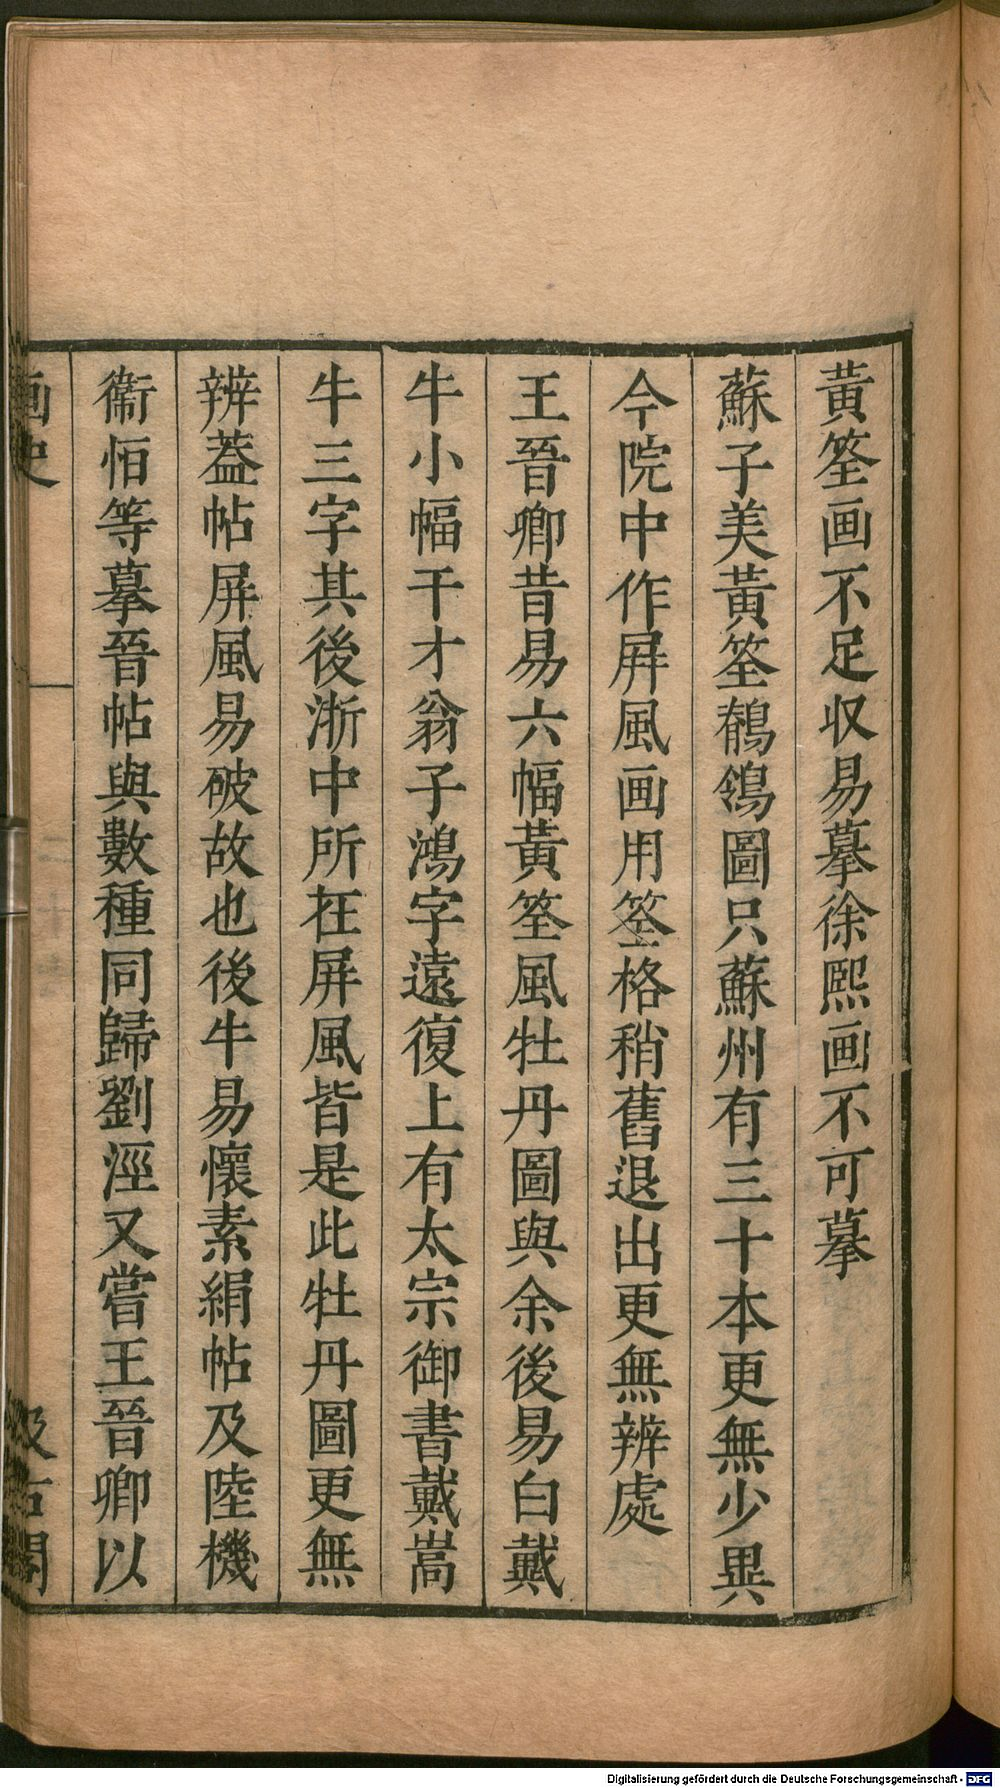 黃筌画不足収易摹徐熙画不可摹
蘇子美黃筌鶺鴒圖只蘇州有三十本更無少異
今院中作屏風画用筌格稍舊退出更無辨處
王晉卿昔易六幅黃筌風牡丹圖與余後易白戴
牛小幅干才翁子鴻字遠復上有太宗御書戴嵩
牛三字其後浙中所在屏風皆是此牡丹圖更無
辨蓋帖屏風易破故也後牛易懷素絹帖及陸機
衞恒等摹晉帖與數種同歸劉涇又嘗王晉卿以
画史
二十
汲古閣
Digitalisierung gefördert durch die Deutsche Forschungsgemeinschaft - DFG